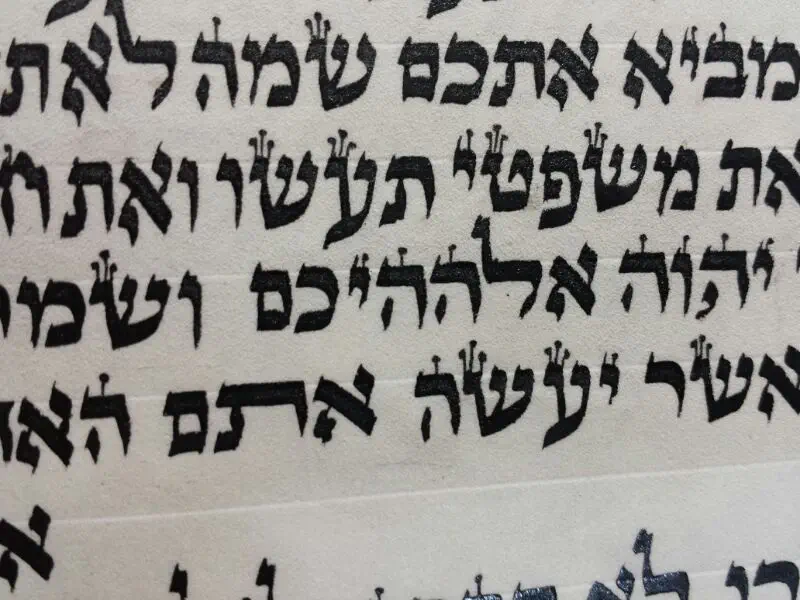 מביא אתכם שמה לא ת
את משפטי תעשו ואת ח
יהוה אלההיכם ושמ
אשר יעשה אתם הא
א
לא